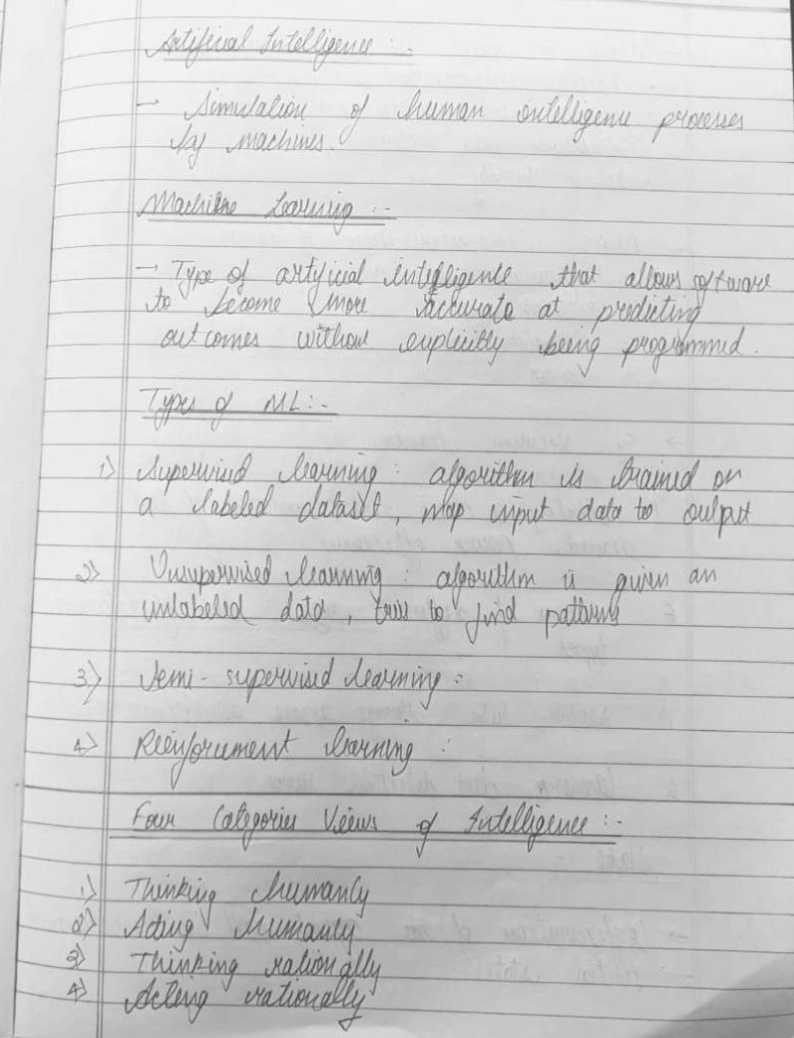 Artificial Intelligence :-
→ Simulation of human intelligence processes
by machines.
Machine Learning :-
→ Type of artificial intelligence that allows software
to become more accurate at predicting
outcomes without explicitly being programmed.
Types of ML :-
1) Supervised learning : algorithm is trained on
a labeled dataset, map input data to output
2) Unsupervised learning : algorithm is given an
unlabeled data, tries to find patterns
3) Semi-supervised learning :
4) Reinforcement learning :
Four Categories Views of Intelligence :-
1) Thinking humanly
2) Acting humanly
3) Thinking rationally
4) Acting rationally